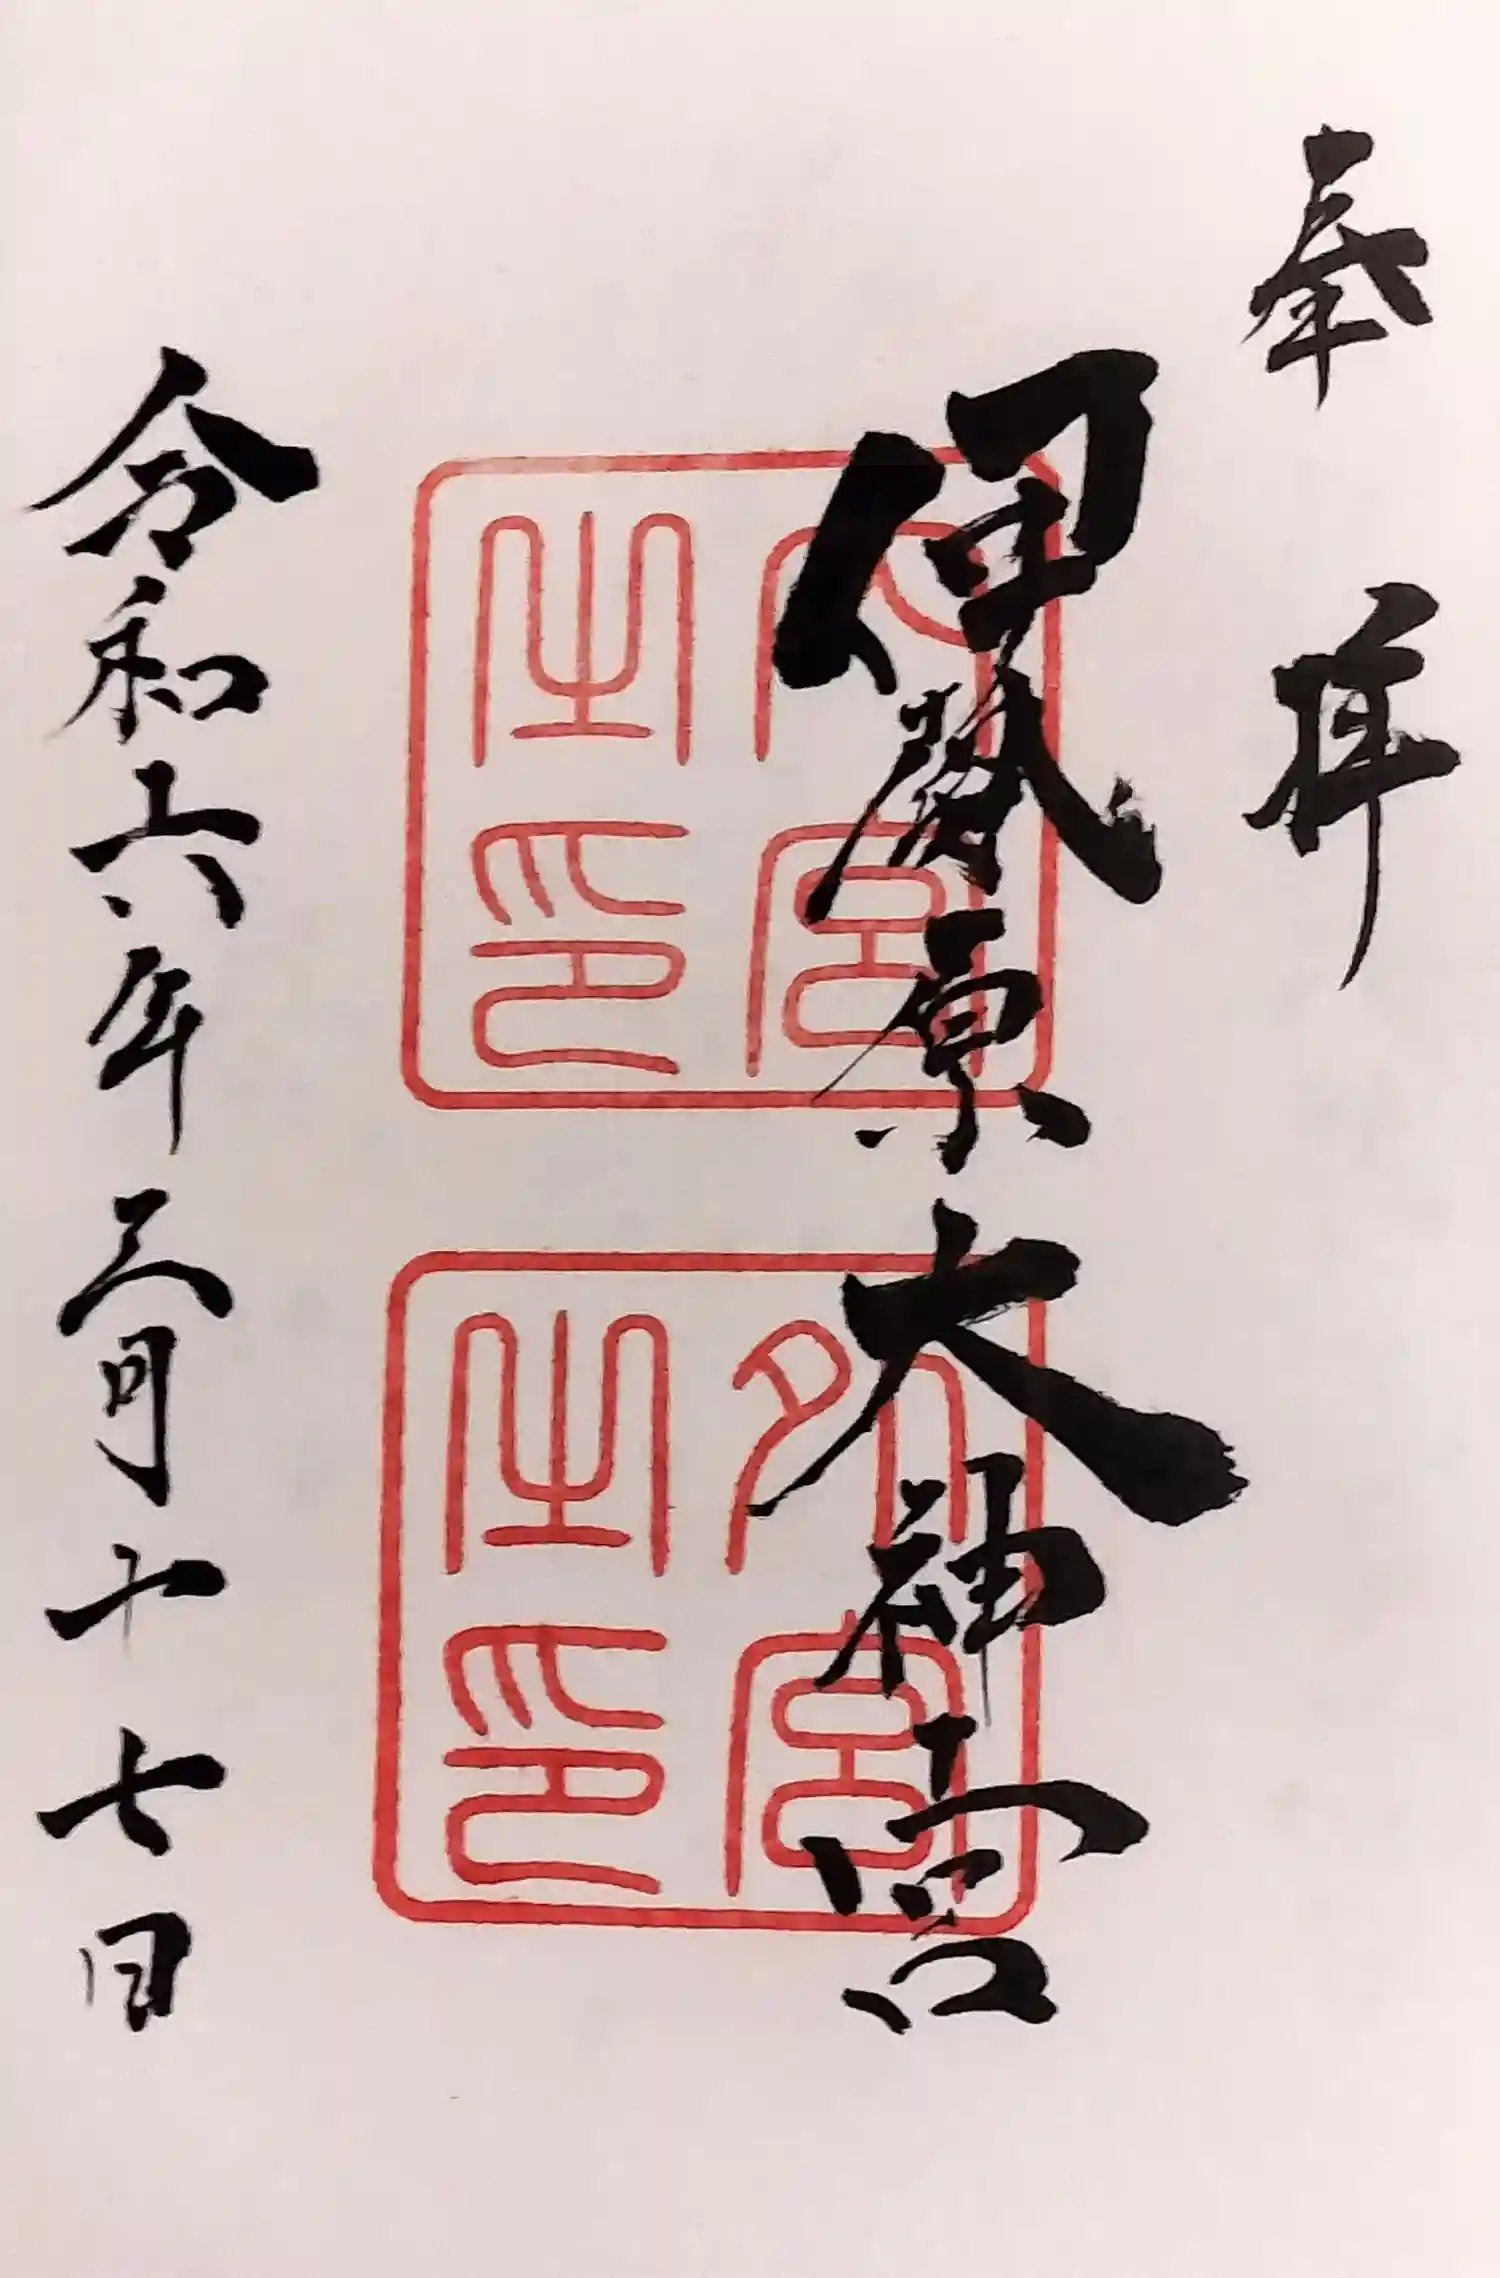 奉拝
伊勢原大神宮
内宮之印
外宮之印
令和六年三月十七日